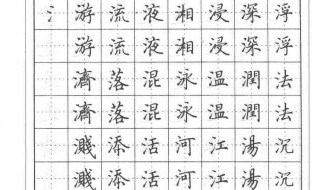 氵游流液湘浸深浮
游流液湘浸深浮
濟落混泳温潤法
濟落混泳温潤法
濺添活河江湯沉
濺添活河江湯沉